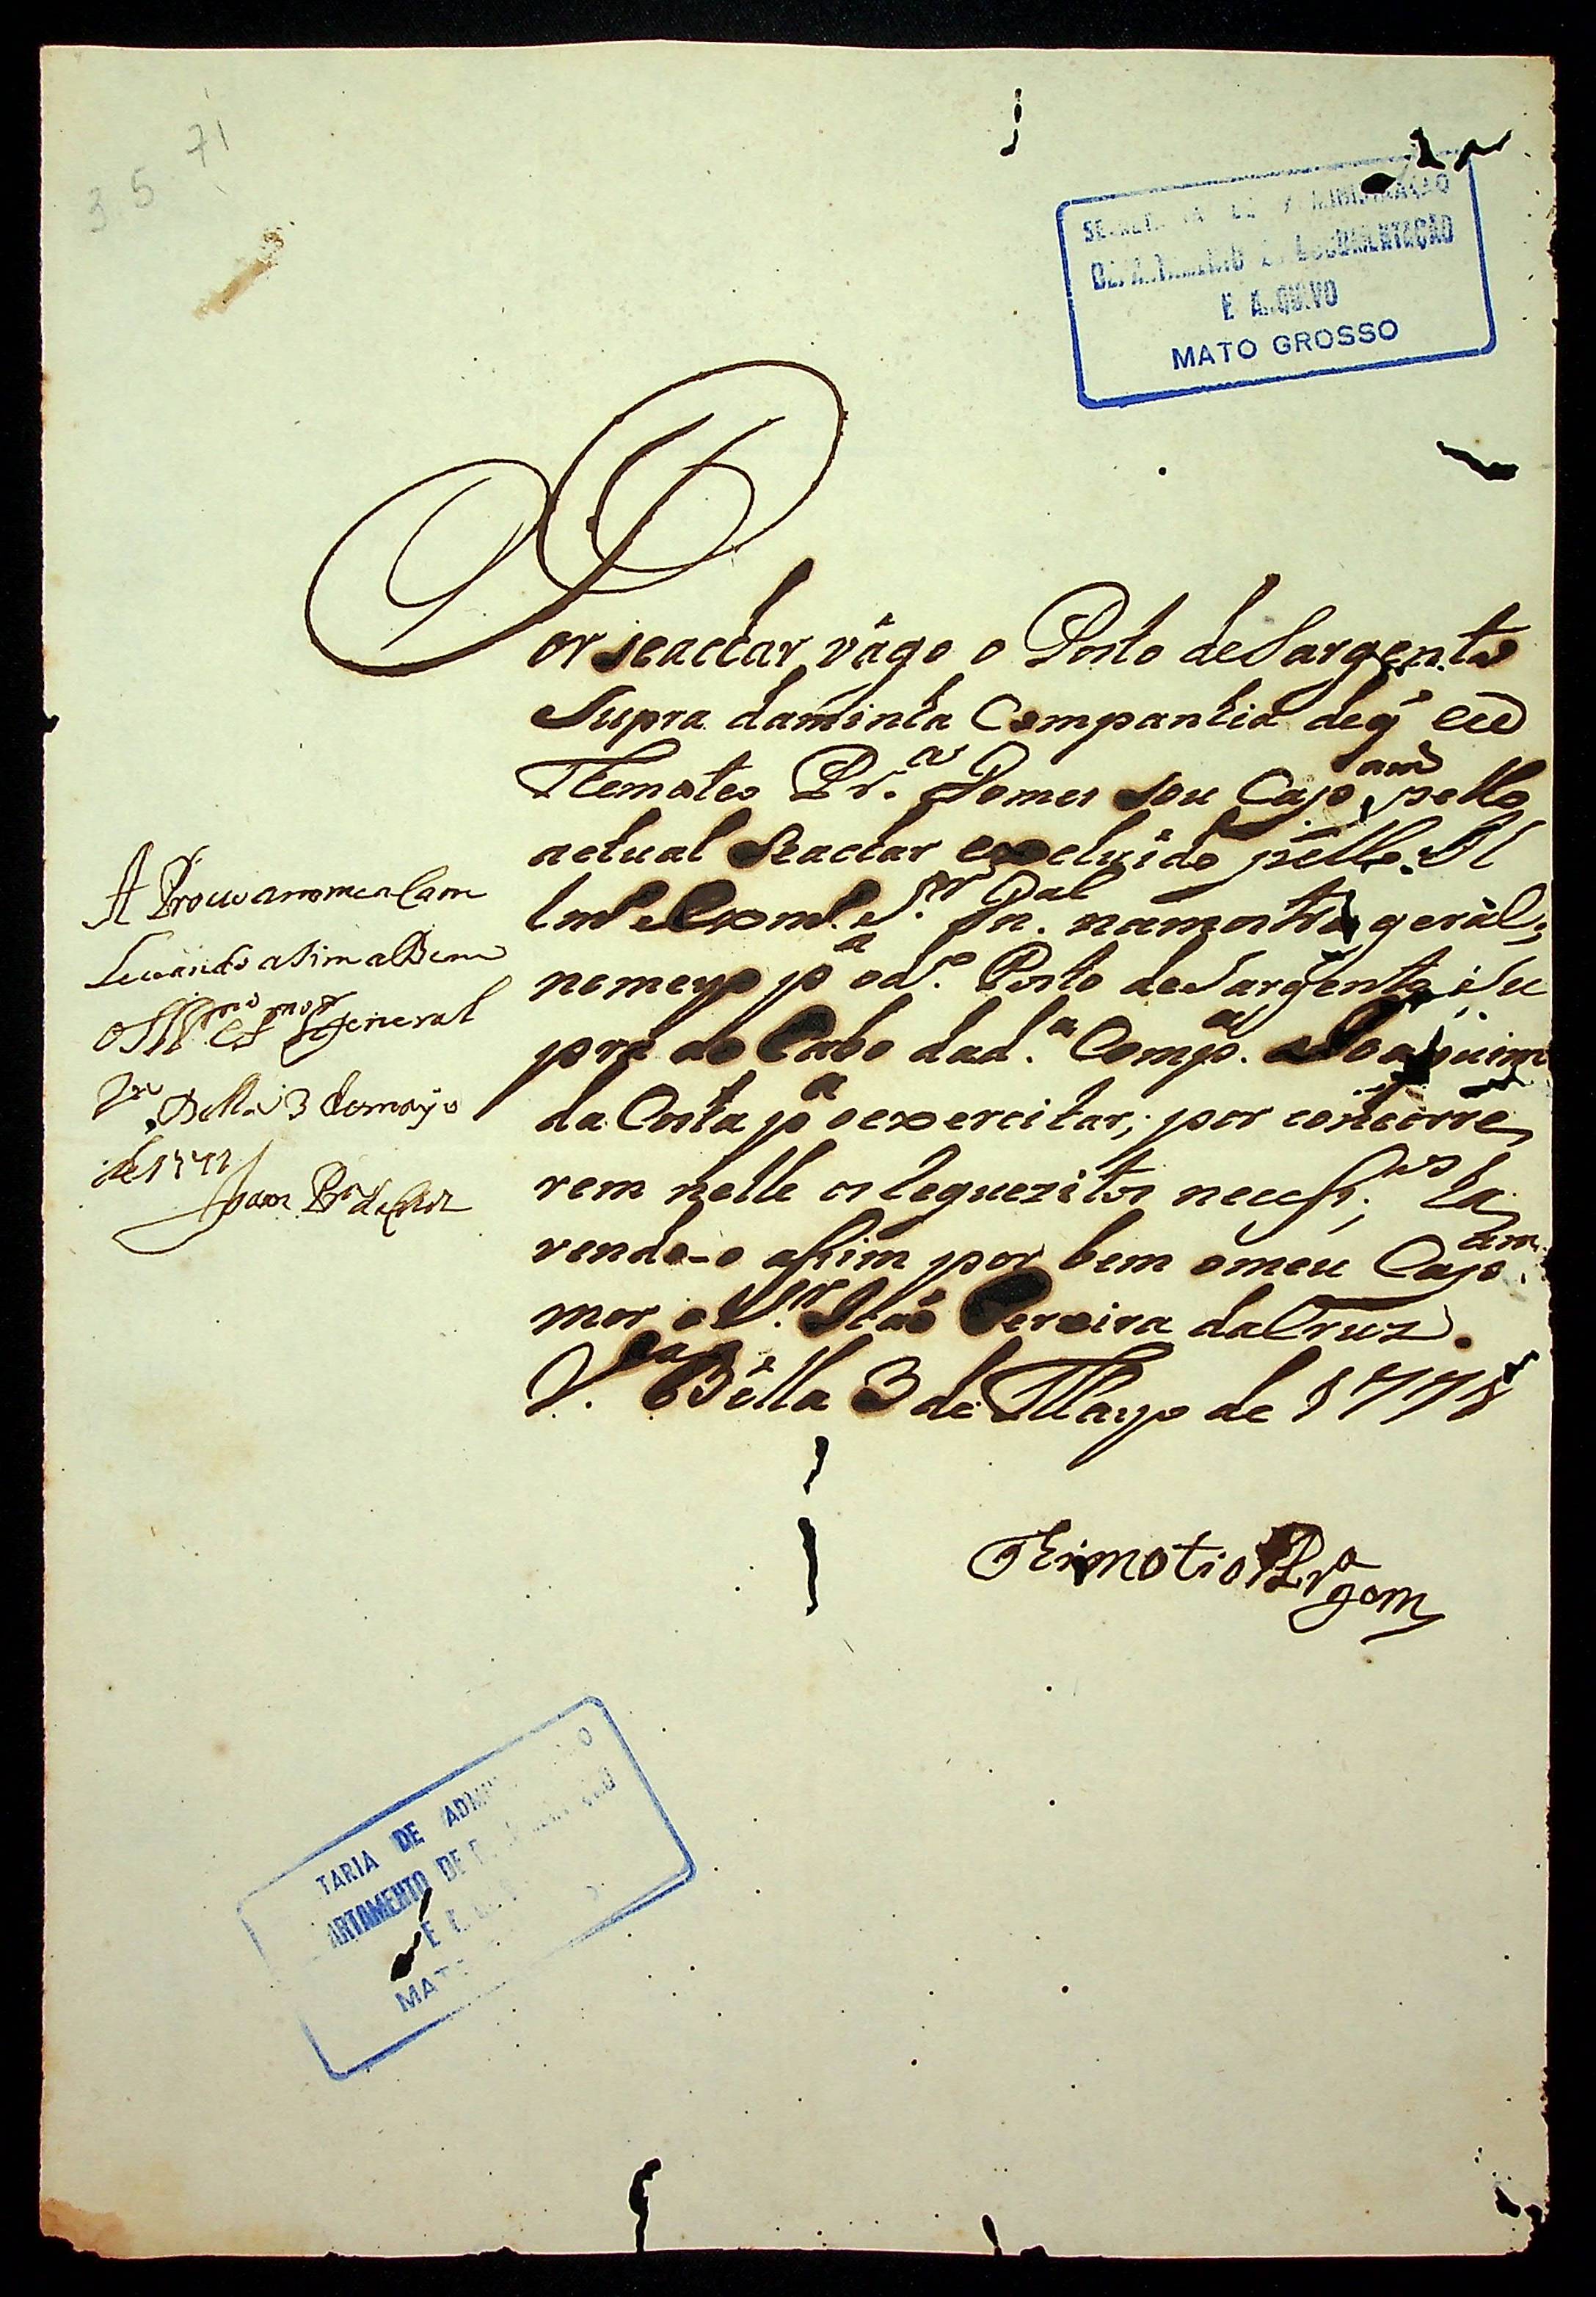 35 71
SECRETARIA DE ADMINISTRAÇÃO
DEPARTAMENTO DE DOCUMENTAÇÃO
E ARQUIVO
MATO GROSSO
Por seachar vágo o Posto deSargento
Supra daminha Companhia deq̃ eu
Themoteo Pr.ª Gomes sou Cap.am pello
actual seachar excluido pello Il
lmo Exmo. S.r Gal. namostra geràl;
nomeyo pª od.º Posto deSargento Su
pra ao Cabo dad.ª Comp.ª Joaquim
da Costa pª oexercitar; por concorre
rem nelle os Requezitos necess.os ha
vendo-o assim por bem omeu Cap.am
mor o S.r João Pereira daCruz.
V.ª Bélla 3 de Mayo de 1771
Thimotio Prª gomz
A Provo anomeaCam
Levando asim aBem
o Illmo e Exmo Sr General
Vª Bella 3 demayo
de 1771
Joam Prª da Cruz
TARIA DE ADMI
ARTAMENTO DE D
E
MAT